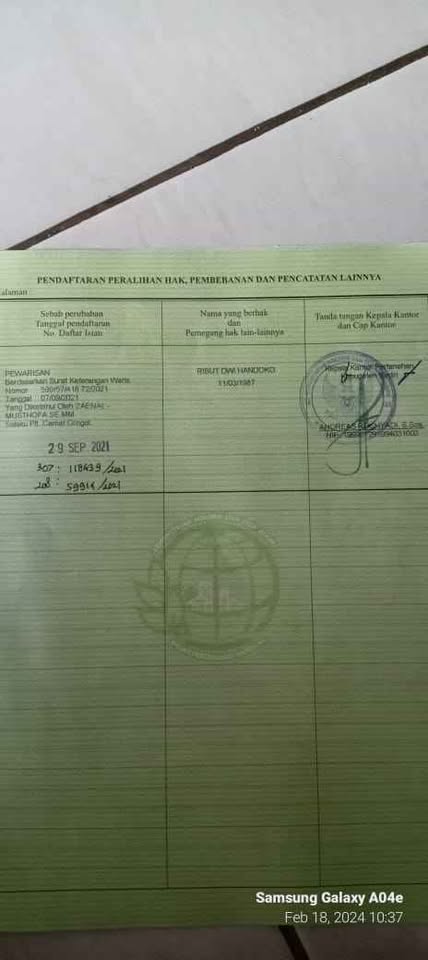 PENDAFTARAN PERALIHAN HAK, PEMBEBANAN DAN PENCATATAN LAINNYA
alaman
Sebab perubahan
Tanggal pendaftaran
No. Daftar Isian
Nama yang berhak
dan
Pemegang hak lain-lainnya
Tanda tangan Kepala Kantor
dan Cap Kantor
PEWARISAN
Berdasarkan Surat Keterangan Waris
Nomor
Tanggal 07/09/2021
Yang Diketahui Oleh ZAENAL
MUSTHOFA SE.MM
Selaku Plt. Camat
29 SEP 2021
307: 118439/2021
208: 59914/2021
RIBUT DWI HANDOKO
11/03/1987
Kepala Kantor Pertanahan
Kabupaten
Samsung Galaxy A04e
Feb 18, 2024 10:37